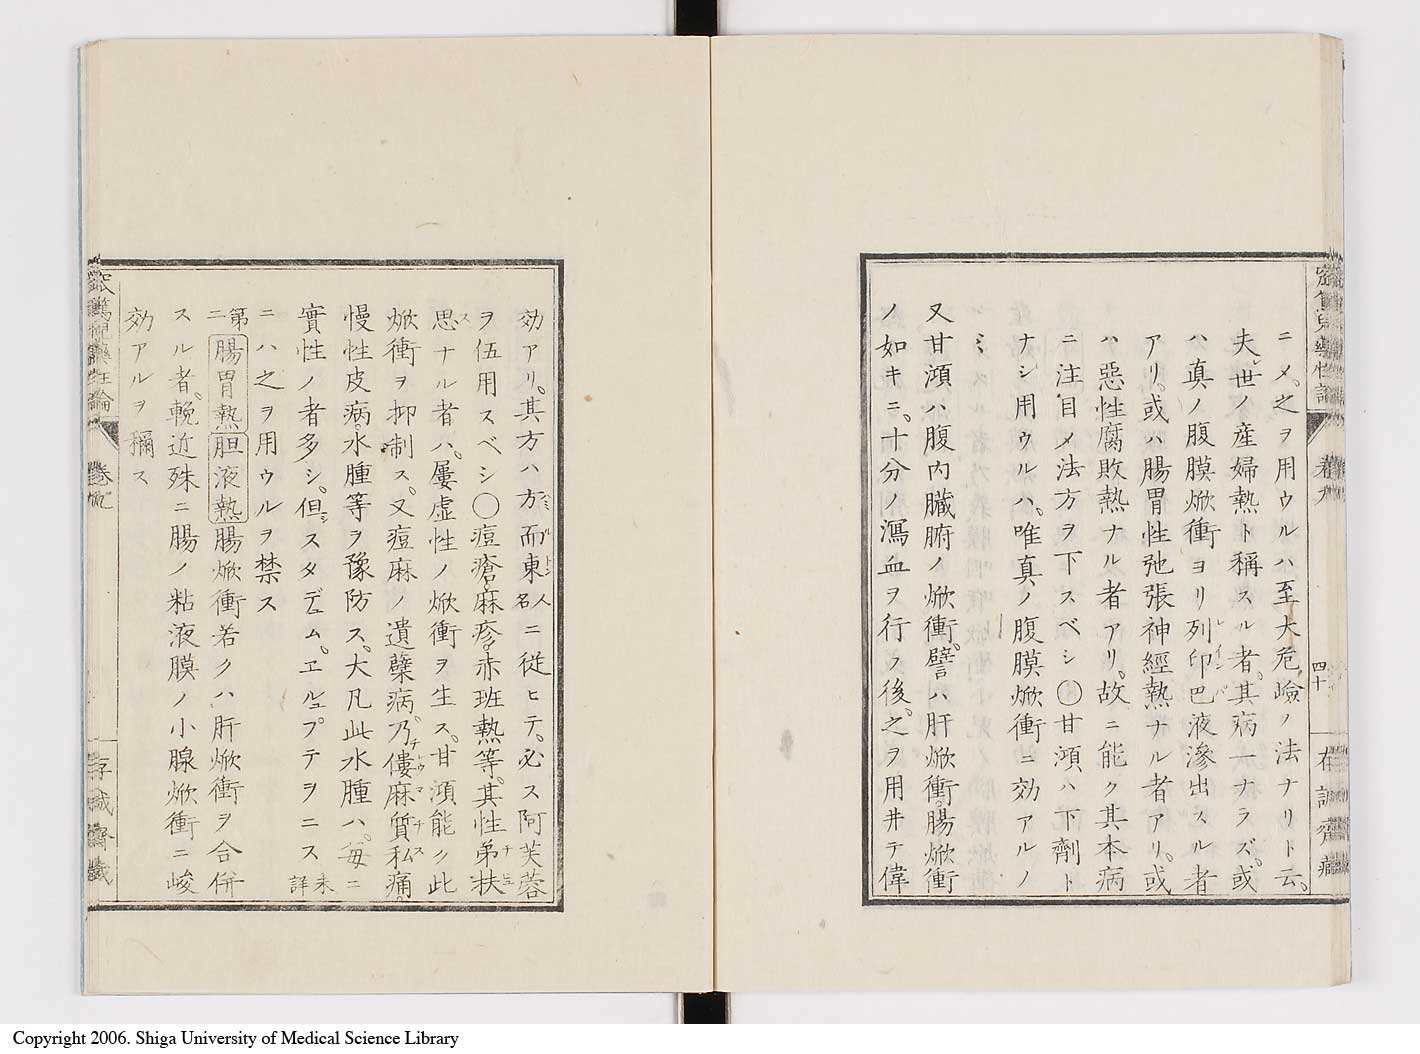 ニメ。之ヲ用ウルハ至大危嶮ノ法ナリト云。
夫世ノ産婦熱ト稱スル者。其病一ナラズ。或
ハ真ノ腹膜焮衝ヨリ列印巴液滲出スル者
レインパ
アリ。或ハ腸胃性弛張神經熱ナル者アリ。或
ハ惡性腐敗熱ナル者アリ。故ニ能ク其本病
ニ注目メ法方ヲ下スベシ〇甘澒ハ下劑ト
ナシ用ウルハ。唯真ノ腹膜焮衝ニ効アルノ
ミ
又甘澒ハ腹内臓腑ノ焮衝。譬ハ肝焮衝。腸焮衝
ノ如キニ。十分ノ瀉血ヲ行フ後。之ヲ用井テ偉
四十
効アリ。其方ハ方而東人名ニ従ヒテ。必ス阿芙蓉
ヲ伍用スベシ〇痘瘡。麻疹。赤班熱等。其性弟扶
思ナル者ハ。屢虚性ノ焮衝ヲ生ス。甘澒能ク此
焮衝ヲ抑制ス。又痘麻ノ遺孽病。乃僂麻質私痛。
慢性皮病。水腫等ヲ豫防ス。大凡此水腫ハ。毎ニ
實性ノ者多シ。但シスタデュム。エルュプテヲニス未詳
ニハ之ヲ用ウルヲ禁ス
第二腸胃熱胆液熱腸焮衝若クハ肝焮衝ヲ合併
スル者。輓近殊ニ腸ノ粘液膜ノ小腺焮衝ニ峻
効アルヲ稱ス
巻九
Copyright 2006. Shiga University of Medical Science Library